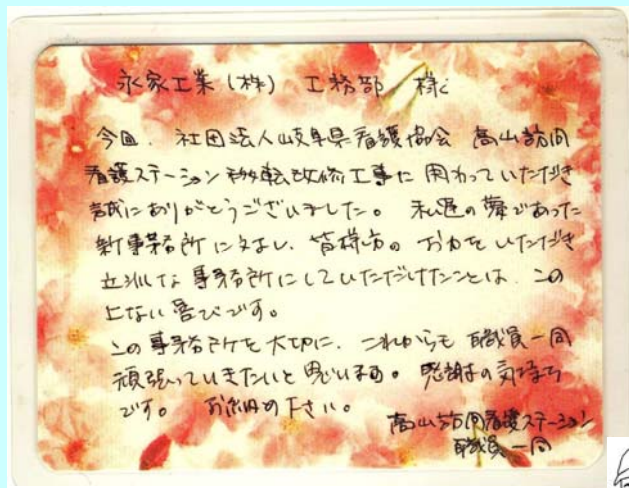 永家工業(株) 工務部 様
今回、社団法人岐阜県看護協会 高山訪問
看護ステーション移転改修工事に関わっていただき
誠にありがとうございました。 私達の夢であった
新事務所に対し、皆様方の お力をいただき
立派な事務所にしていただけたことは、この
上ない喜びです。
この事務所を大切に、これからも 職員一同
頑張っていきたいと思います。 感謝の気持ち
です。 お納め下さい。
高山訪問看護ステーション
職員一同